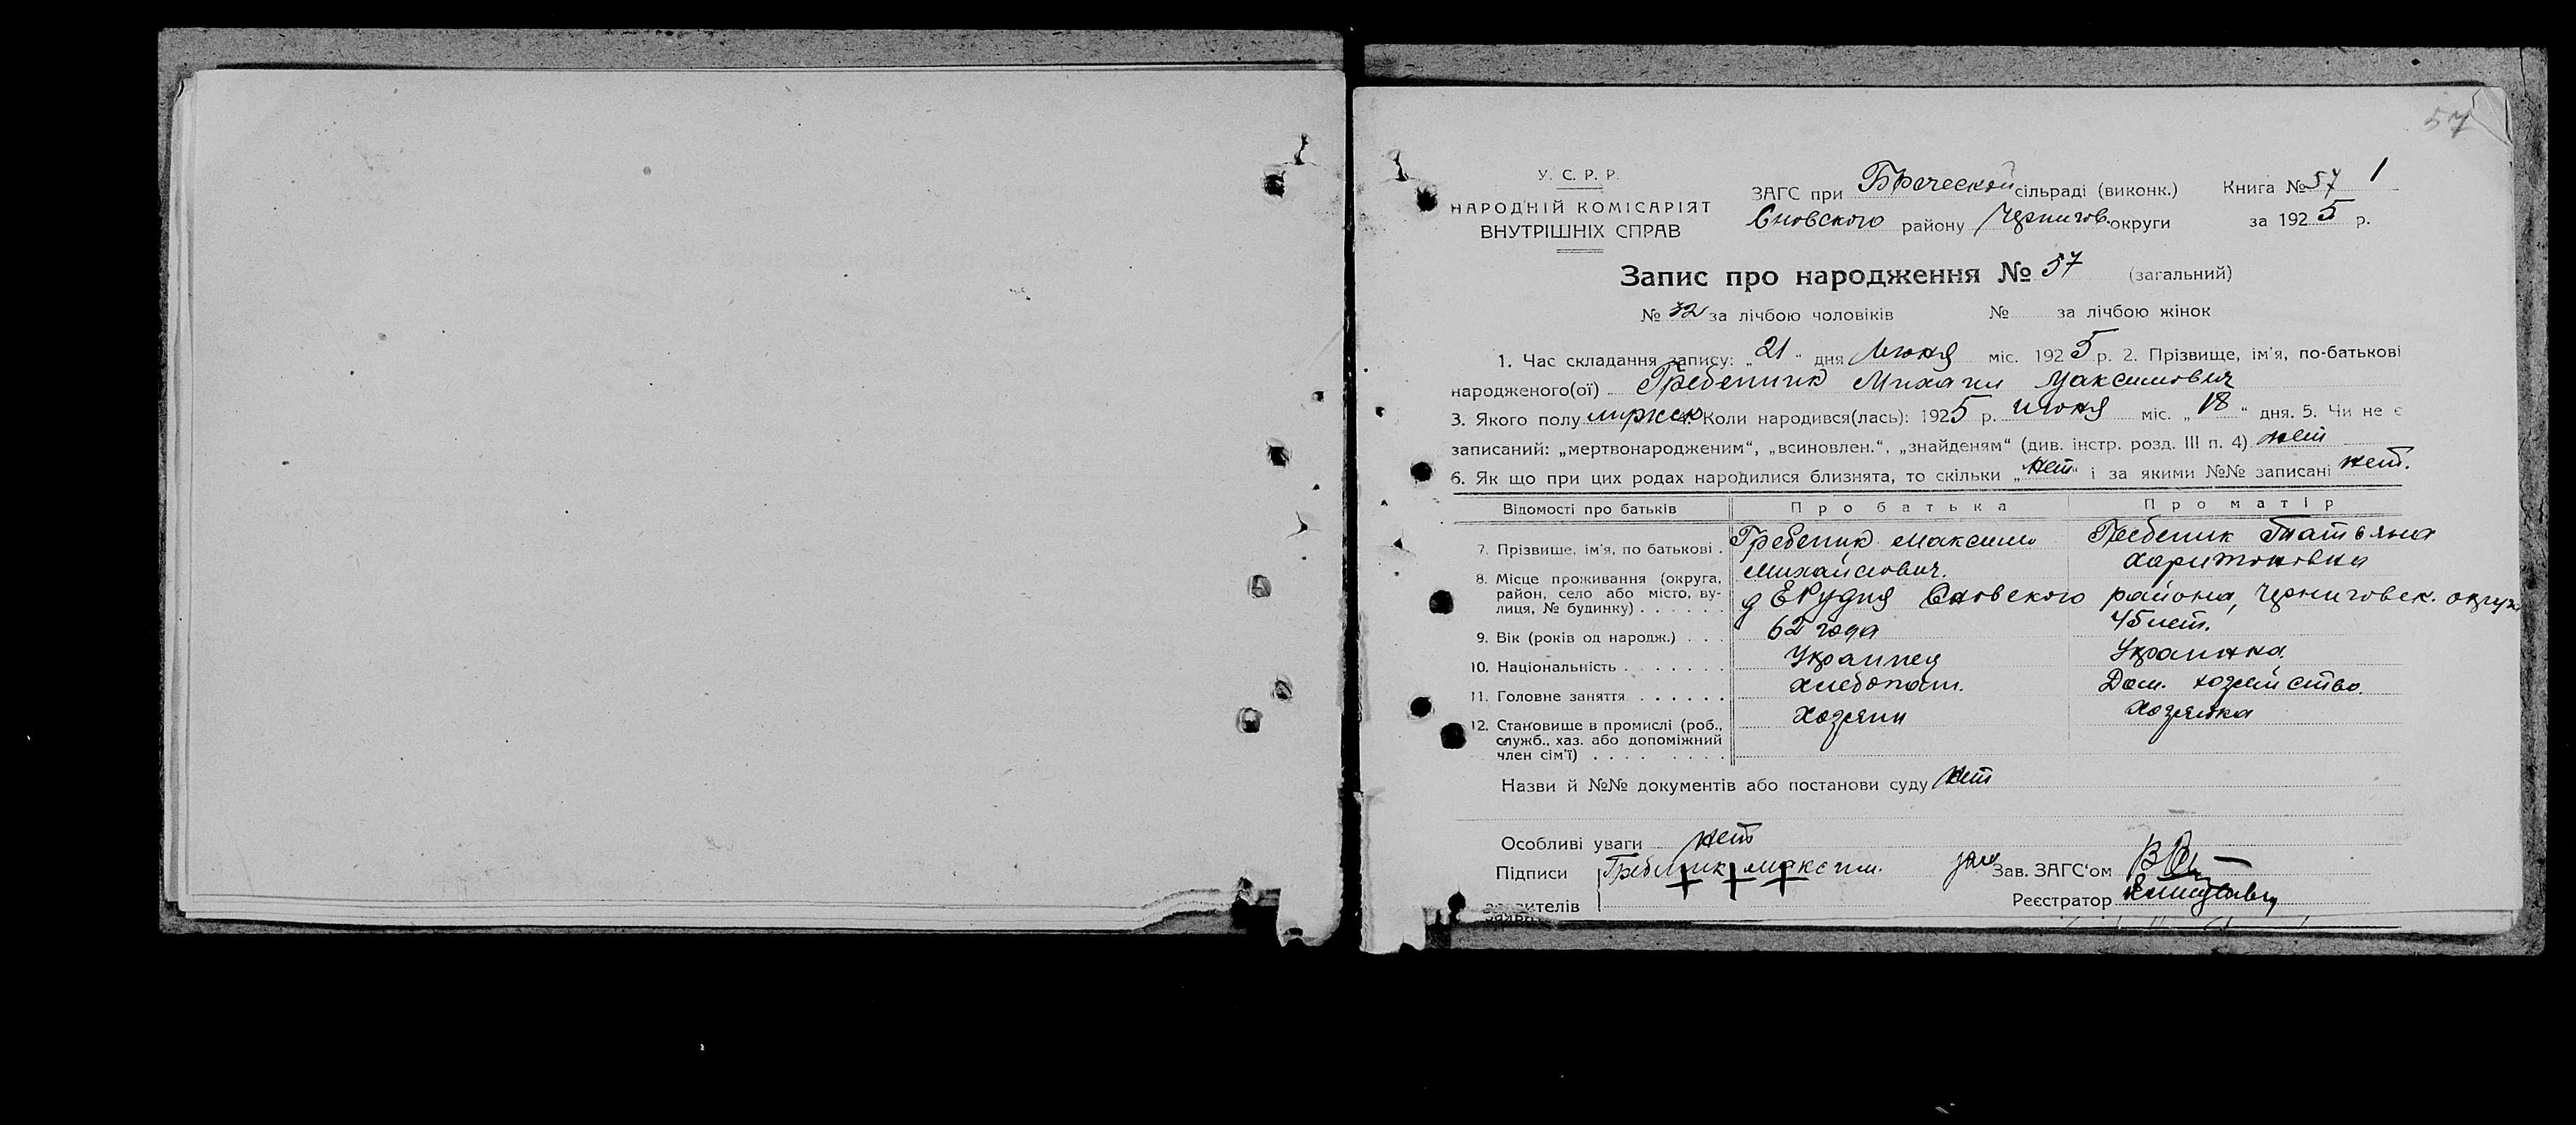 57
У. С. Р. Р.
НАРОДНІЙ КОМІСАРІЯТ
ВНУТРІШНІХ СПРАВ
ЗАГС при Бреческой сільраді (виконк.) Книга № 57 1
Сновского району Чернигов. округи за 1925 р.
Запис про народження № 57 (загальний)
№ 32 за лічбою чоловіків № за лічбою жінок
1. Час складання запису: „21“ дня Июня міс. 1925 р. 2. Прізвище, ім'я, по-батькові
народженого(ої) Гребеник Михаил Максимович
3. Якого полу мужск 4. Коли народився(лась): 1925 р. июня міс. „18“ дня. 5. Чи не є
записаний: „мертвонародженим“, „всиновлен.“, „знайденям“ (див. інстр. розд. III п. 4) нет
6. Як що при цих родах народилися близнята, то скільки „нет“ і за якими №№ записані нет.
Відомості про батьків Про батька Про матір
7. Прізвише, ім'я, по батькові . Гребеник Максим Гребеник Татьяна
Михайлович. Харитоновна
8. Місце проживання (округа,
район, село або місто, ву-
лиця, № будинку) . . . . . . д Е Рудня Сновского района, Черниговск. округ
9. Вік (років од народж.) . . . 62 года 45 лет.
10. Національність . . . . . . . Украинец Украинка.
11. Головне заняття . . . . . . Хлебопаш. Дом. хозяйство.
12. Становище в промислі (роб.,
служб., хаз. або допоміжний
член сім'ї) . . . . . . . . Хозяин Хозяйка
Назви й №№ документів або постанови суду Нет
Особливі уваги нет
Підписи Гребеник Максим. Зав. ЗАГС'ом
заявителів Реєстратор